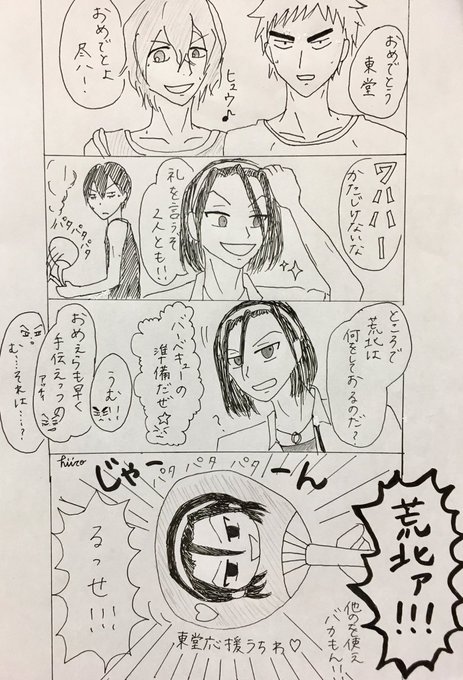 おめでとう
東堂
おめでとよ
尽八ー!
ヒュウ〜♪
ワハハー
かたじけないな
礼を言うぞ
2人とも!!
パタパタパタ
ところで
荒北は
何をしておるのだ?
バーベキューの
準備だぜ☆
うむ!!
おめぇらも早く
手伝えっつの
アァ?
む…それは……?
hiiro
じゃーーん
パタパタパタパタ
荒北ァ!!!
るっせ!!!
他のを使え
バカもん!!
東堂応援うちわ♡